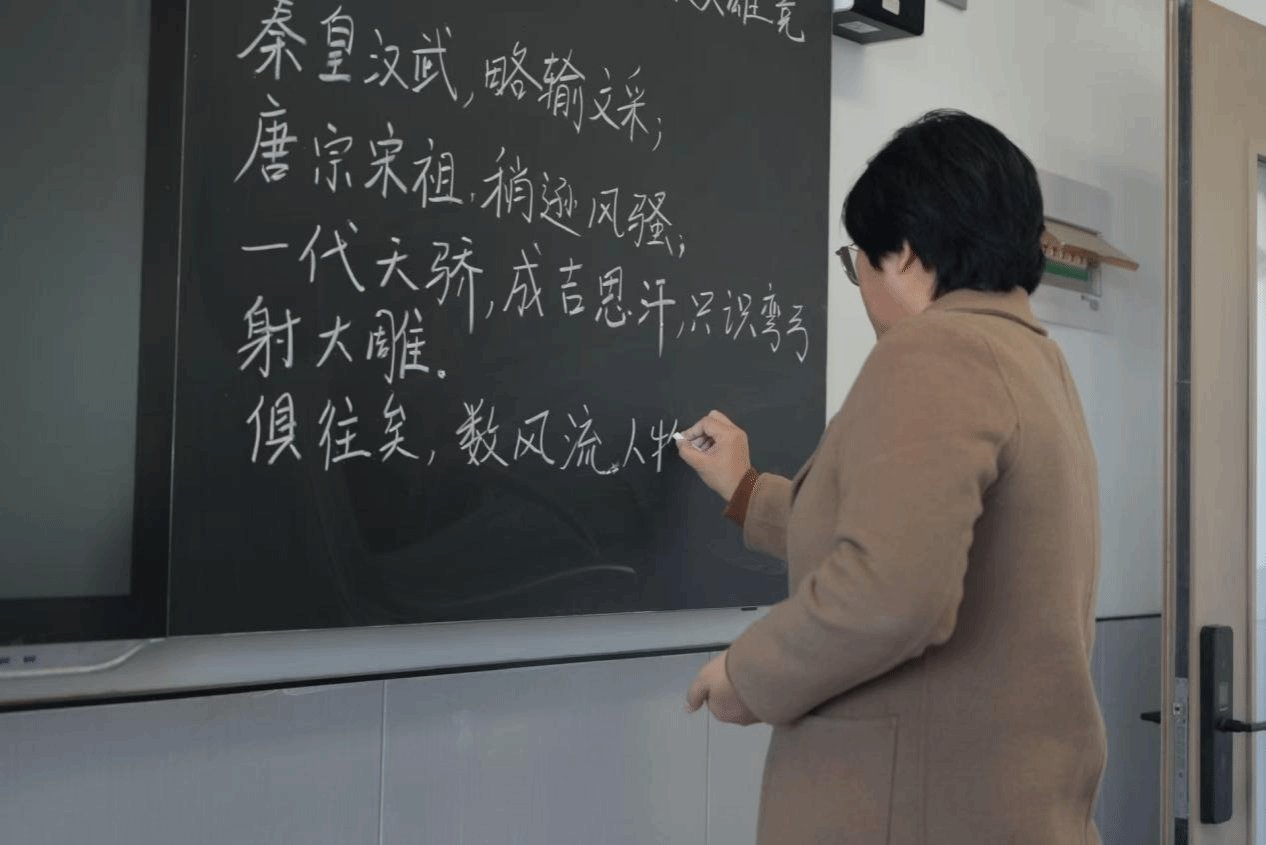 雄竞
秦皇汉武,略输文采;
唐宗宋祖,稍逊风骚;
一代天骄,成吉思汗,只识弯弓
射大雕。
俱往矣,数风流人物